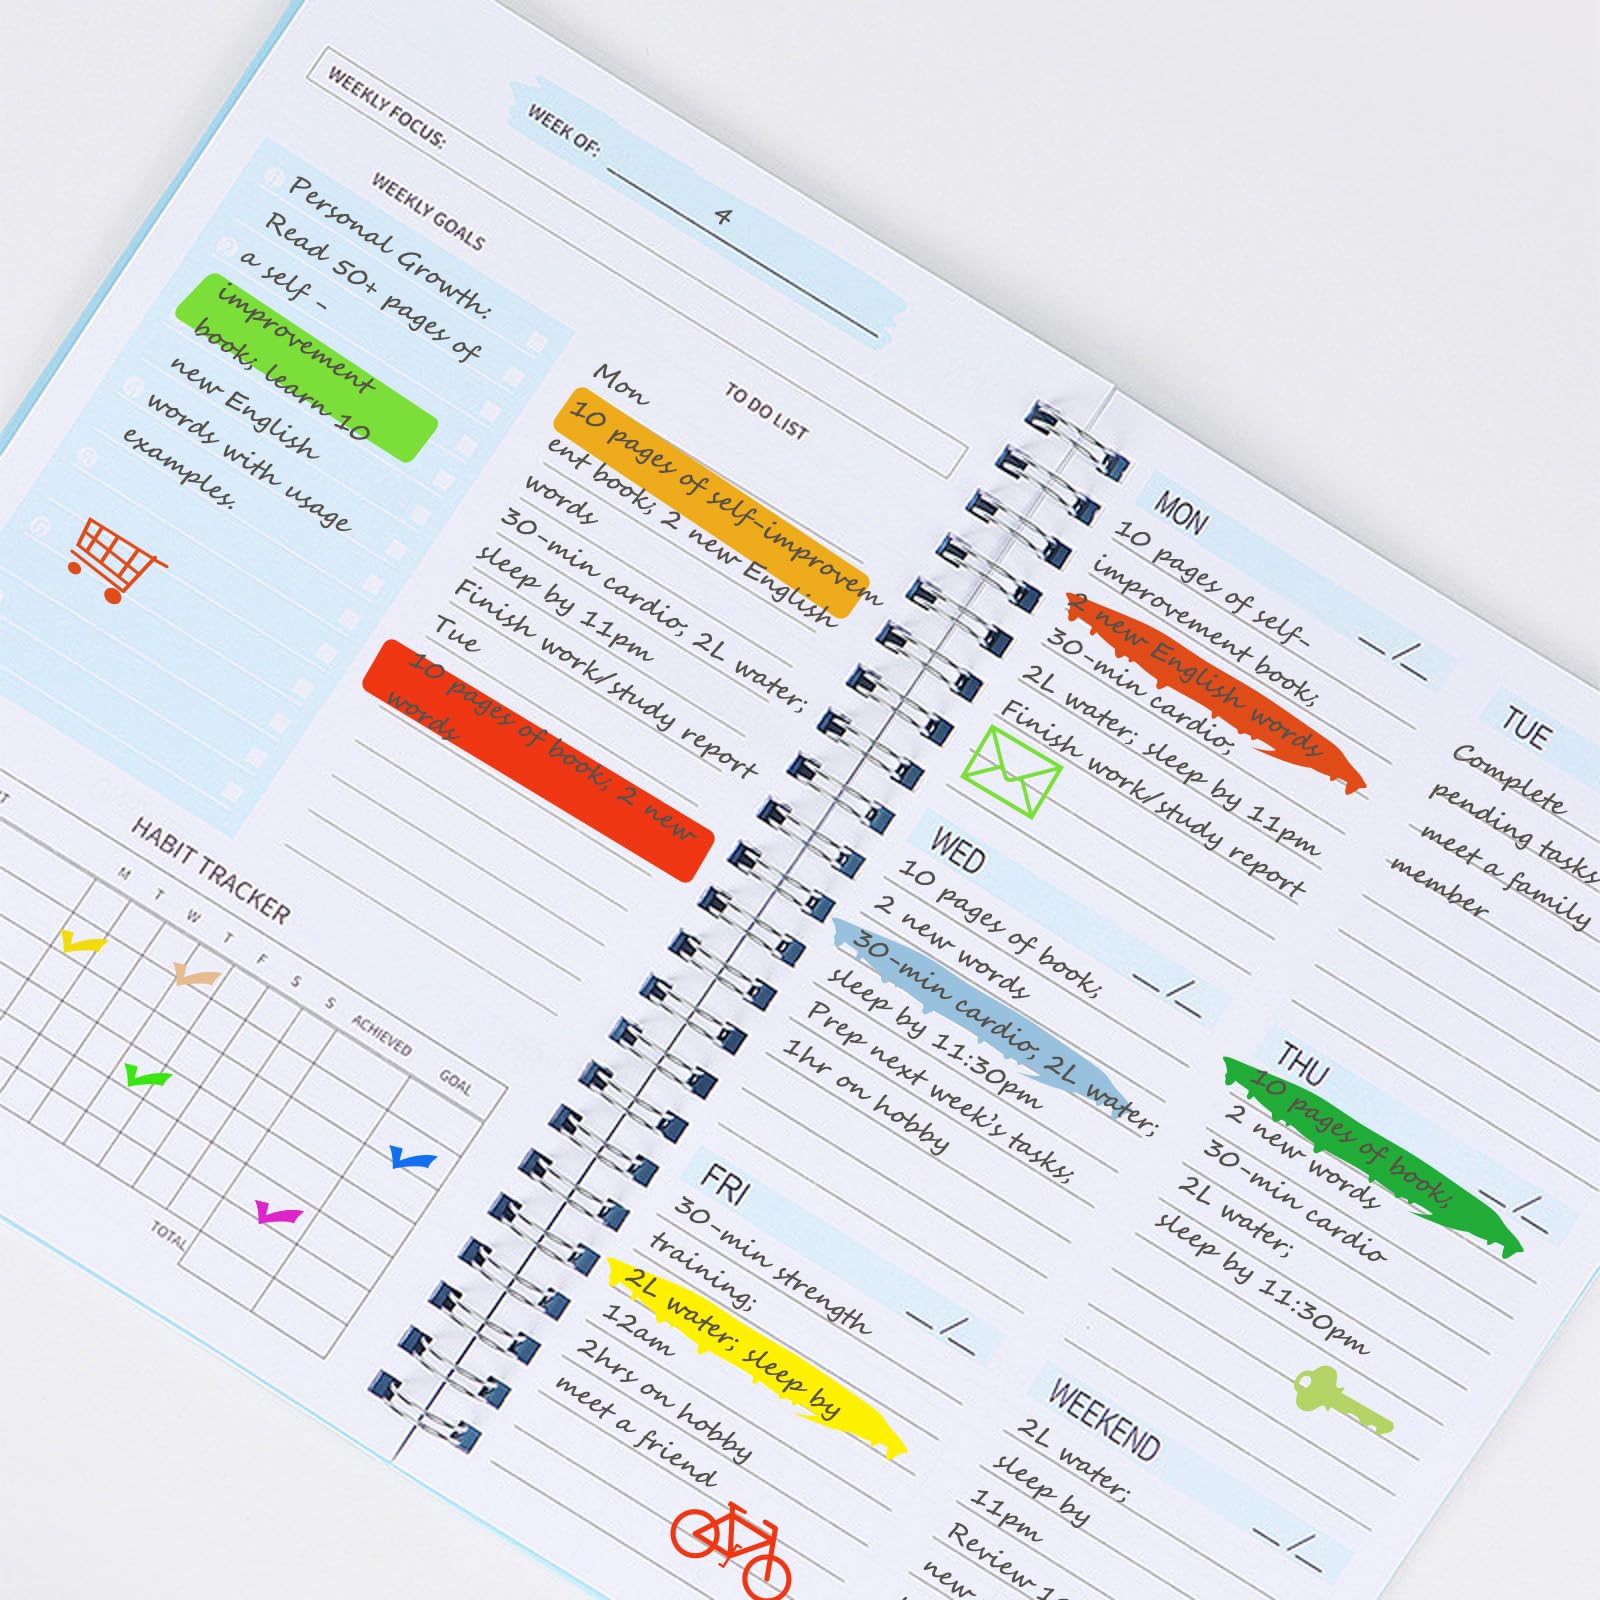 WEEKLY FOCUS:
WEEK OF:
4
WEEKLY GOALS
1
Personal Growth:
Read 50+ pages of
2
a self -
improvement
book; learn 10
new English
4
words with usage
examples.
5
6
TO DO LIST
Mon
10 pages of self-improvem
ent book; 2 new English
words
30-min cardio; 2L water;
sleep by 11pm
Finish work/study report
Tue
10 pages of book; 2 new
words
HABIT TRACKER
M T W T F S S ACHIEVED GOAL
TOTAL
MON
_/_
10 pages of self-
improvement book;
2 new English words
30-min cardio;
2L water; sleep by 11pm
Finish work/study report
TUE
Complete
pending tasks
meet a family
member
WED
_/_
10 pages of book;
2 new words
30-min cardio; 2L water;
sleep by 11:30pm
Prep next week's tasks;
1hr on hobby
THU
_/_
10 pages of book;
2 new words
30-min cardio
2L water;
sleep by 11:30pm
FRI
_/_
30-min strength
training;
2L water; sleep by
12am
2hrs on hobby
meet a friend
WEEKEND
_/_
2L water;
sleep by
11pm
Review
new